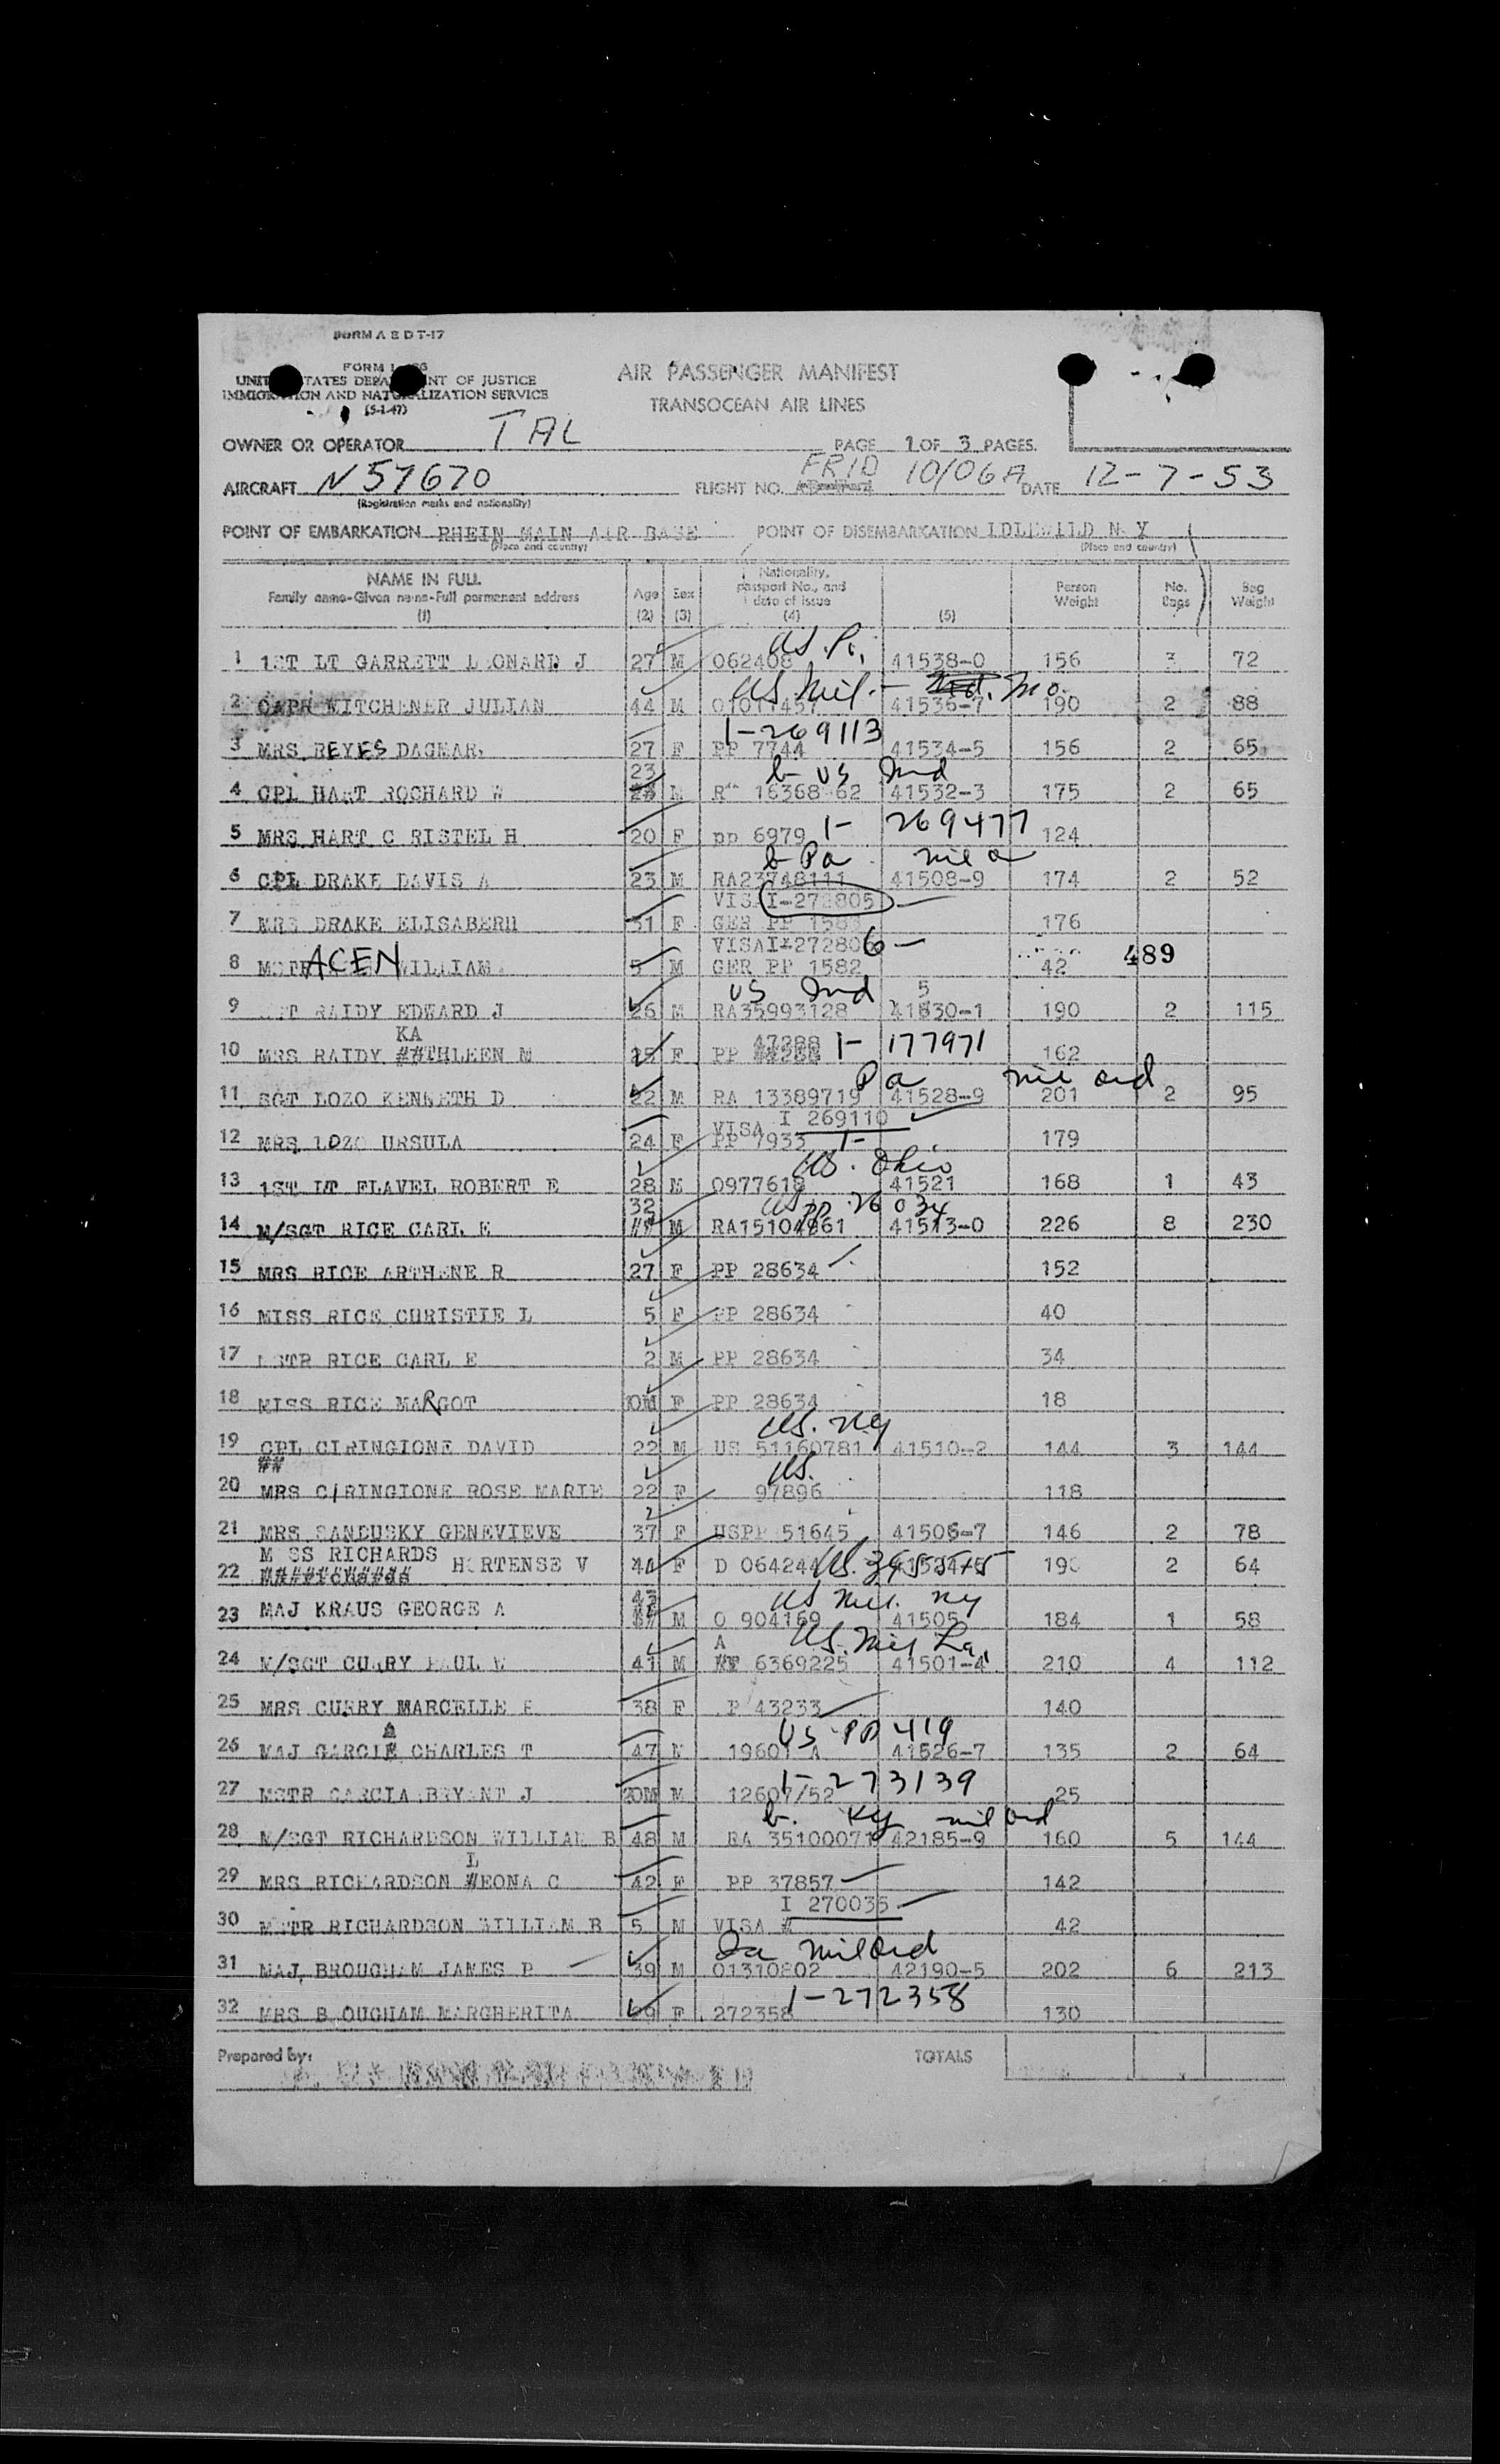 FORM A E D T-17
FORM I-466
UNITED STATES DEPARTMENT OF JUSTICE
IMMIGRATION AND NATURALIZATION SERVICE
(5-1-47)
AIR PASSENGER MANIFEST
TRANSOCEAN AIR LINES
OWNER OR OPERATOR TAL PAGE 1 OF 3 PAGES.
AIRCRAFT N57670 FLIGHT NO. FRID 10/06A DATE 12-7-53
(Registration marks and nationality)
POINT OF EMBARKATION RHEIN MAIN AIR BASE POINT OF DISEMBARKATION IDLEWILD N Y
(Place and country) (Place and country)
NAME IN FULL Family name-Given name-Full permanent address (1) Age (2) Sex (3) Nationality, passport No., and date of issue (4) (5) Person Weight No. Bags Bag Weight
US. Pa.
1 1ST LT GARRETT LEONARD J 27 M 062408 41538-0 156 3 72
US Mil. - Mo.
2 CAPR WITCHENER JULIAN 44 M 01011457 41536-7 190 2 88
1-269113
3 MRS REYES DAGMAR 27 F PP 7744 41534-5 156 2 65
23 b US Ind
4 CPL HART ROCHARD W M 16368 62 41532-3 175 2 65
5 MRS HART C RISTEL H 20 F pp 6979 1- 269477 124
b Pa mil o
6 CPL DRAKE DAVIS A 23 M RA23748111 41508-9 174 2 52
VISA I-272805
7 MRS DRAKE ELISABERH 31 F GER PP 158 176
VISA I-272806
8 MSTR ACEN WILLIAM 5 M GER PP 1582 42 489
US Ind 5
9 RAIDY EDWARD J 26 M RA35993128 41830-1 190 2 115
KA 47288 1- 177971
10 MRS RAIDY ##THLEEN M 25 F PP 162
Pa mil ord
11 SGT LOZO KENNETH D 22 M RA 13389719 41528-9 201 2 95
VISA I 269110
12 MRS LOZO URSULA 24 F PP 7933 1- 179
US. Ohio
13 1ST LT FLAVEL ROBERT E 28 M 0977618 41521 168 1 43
32 US PP 26034
14 M/SGT RICE CARL E ## M RA15104861 41513-0 226 8 230
15 MRS RICE ARTHENE R 27 F PP 28634 152
16 MISS RICE CHRISTIE L 5 F PP 28634 40
17 MSTR RICE CARL E 2 M PP 28634 34
18 MISS RICE MARGOT 10M F PP 28634 18
US. NY
19 CPL CIRINGIONE DAVID 22 M US 51160781 41510-2 144 3 144
## US.
20 MRS CIRINGIONE ROSE MARIE 22 F 97896 118
21 MRS SANDUSKY GENEVIEVE 37 F USPP 51645 41506-7 146 2 78
MISS RICHARDS
22 HORTENSE V 44 F D 064244 US. 190 2 64
43 US Mil. NY
23 MAJ KRAUS GEORGE A M O 904169 41505 184 1 58
A US. Mil La.
24 M/SGT CURRY PAUL W 41 M 6369225 41501-4 210 4 112
25 MRS CURRY MARCELLE 38 F P 43233 140
A US PP 419
26 MAJ GARCIA CHARLES T 47 M 19601 A 41526-7 135 2 64
1-273139
27 MSTR GARCIA BRYANT J 20M M 12607/52 25
b. Ky mil ord
28 M/SGT RICHARDSON WILLIAM B 48 M RA 35100071 42185-9 160 5 144
L
29 MRS RICHARDSON #EONA C 42 F PP 37857 142
I 270035
30 MSTR RICHARDSON WILLIAM B 5 M VISA # 42
Ia mil ord
31 MAJ BROUGHAM JAMES P 39 M 01310802 42190-5 202 6 213
1-272358
32 MRS B OUGHAM MARGHERITA 29 F 272358 130
Prepared by: TOTALS